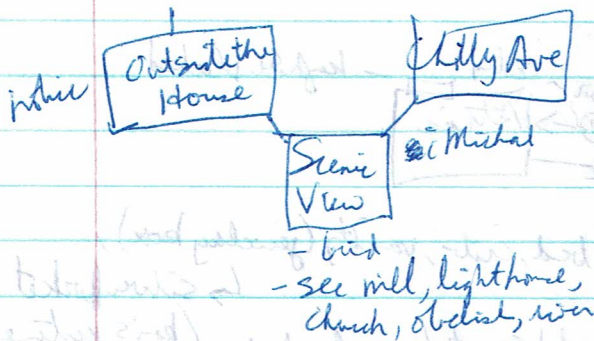 Outside the
House
Chilly Ave
police
Michael
Scenic
View
- bird
- see mill, lighthouse,
church, obelisk, river